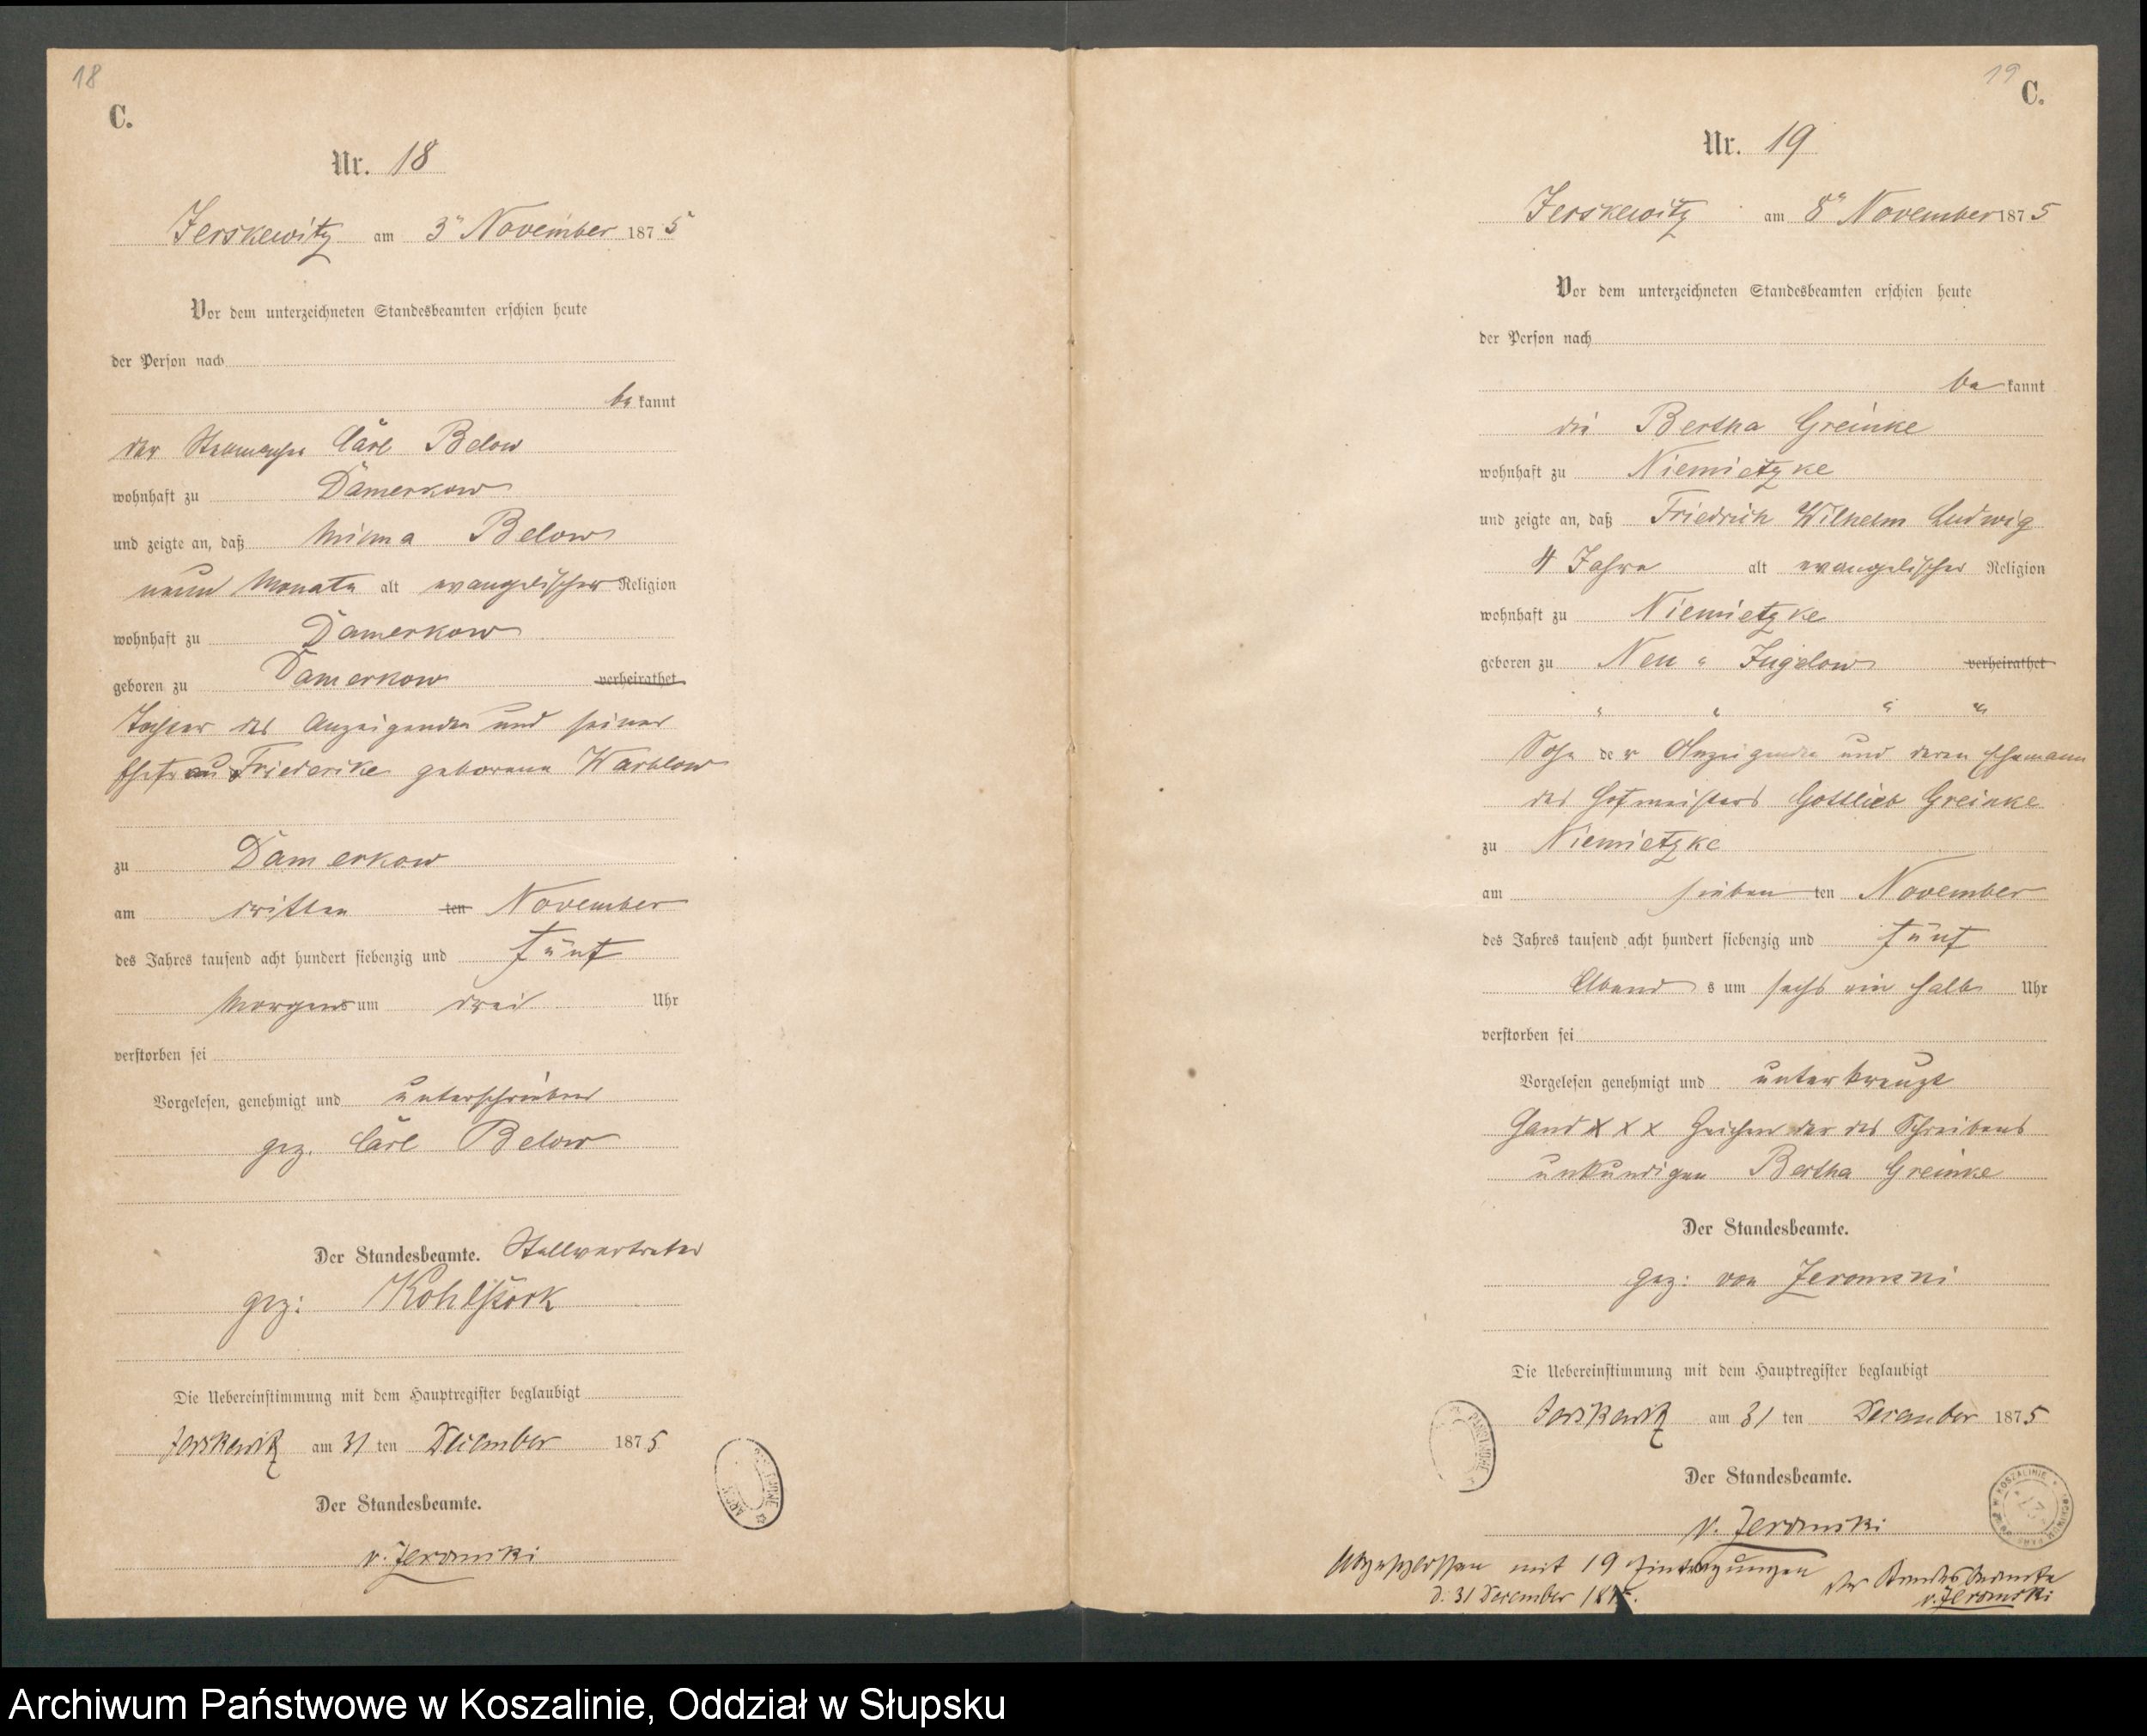 18
C.
Nr. 18
Jerskewitz am 3" November 1875
Vor dem unterzeichneten Standesbeamten erschien heute
der Person nach
bekannt
der Stellmacher Carl Below
wohnhaft zu Damerkow
und zeigte an, daß Minna Below
neun Monate alt evangelischer Religion
wohnhaft zu Damerkow
geboren zu Damerkow verheirathet
Tochter des Anzeigenden und seiner
Ehefrau Friederike geborene Warblow
zu Damerkow
am dritten ten November
des Jahres tausend acht hundert siebenzig und fünf
Morgens um drei Uhr
verstorben sei
Vorgelesen, genehmigt und unterschrieben
gez. Carl Below
Der Standesbeamte. Stellvertreter
gez:
Die Uebereinstimmung mit dem Hauptregister beglaubigt
Jerskewitz am 31 ten December 1875
Der Standesbeamte.
v. Jeromski
19
C.
Nr. 19
Jerskewitz am 8" November 1875
Vor dem unterzeichneten Standesbeamten erschien heute
der Person nach
bekannt
die Bertha Greinke
wohnhaft zu Niemietzke
und zeigte an, daß Friedrich Wilhelm Ludwig
4 Jahre alt evangelischer Religion
wohnhaft zu Niemietzke
geboren zu Neu " Jugelow verheirathet
" " " "
Sohn der Anzeigenden und deren Ehemann
des Hofmeisters Gottlieb Greinke
zu Niemietzke
am sieben ten November
des Jahres tausend acht hundert siebenzig und fünf
Abends um sechs ein halb Uhr
verstorben sei
Vorgelesen genehmigt und unterkreuzt
Hand x x x Zeichen der des Schreibens
unkundigen Bertha Greinke
Der Standesbeamte.
gez: von Jeromski
Die Uebereinstimmung mit dem Hauptregister beglaubigt
Jerskewitz am 31 ten December 1875
Der Standesbeamte.
v. Jeromski
Abgeschlossen mit 19 Eintragungen
d. 31 December 1875.
Der Standesbeamte
v. Jeromski
Archiwum Państwowe w Koszalinie, Oddział w Słupsku